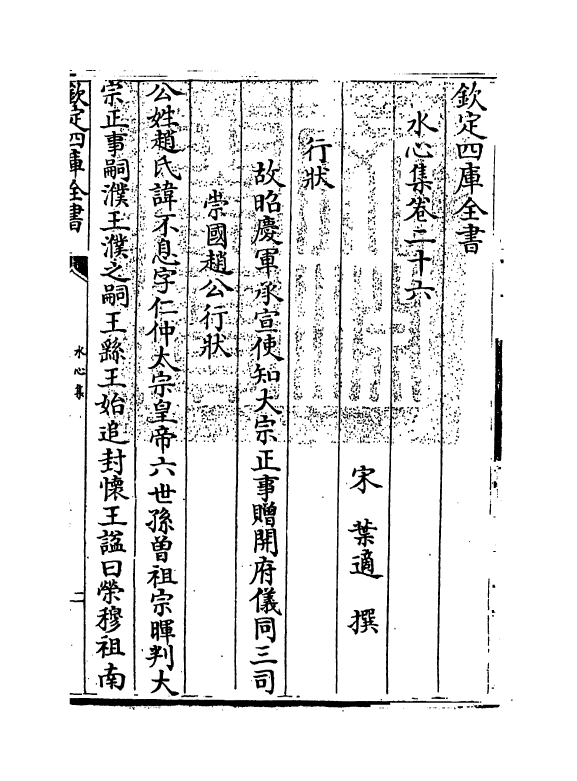 欽定四庫全書
水心集卷二十六
宋 葉適 撰
行狀
故昭慶軍承宣使知大宗正事贈開府儀同三司
崇國趙公行狀
公姓趙氏諱不息字仁仲太宗皇帝六世孫曽祖宗暉判大
宗正事嗣濮王濮之嗣王繇王始追封懷王諡曰榮穆祖南
欽定四庫全書
水心集